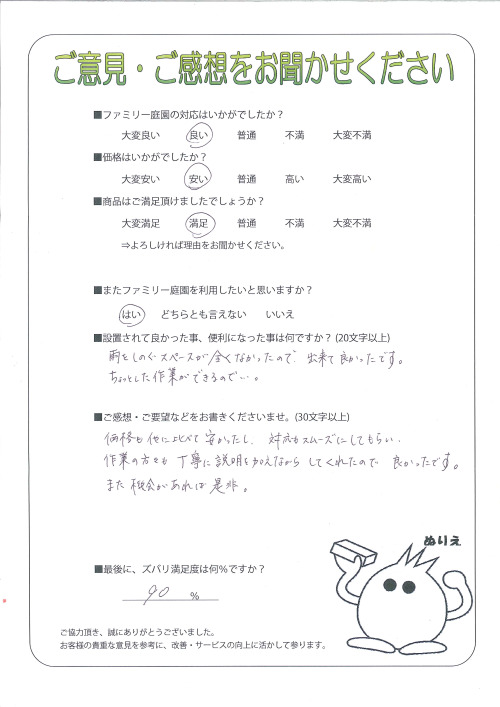 ご意見・ご感想をお聞かせください
■ファミリー庭園の対応はいかがでしたか？
大変良い 良い 普通 不満 大変不満
■価格はいかがでしたか？
大変安い 安い 普通 高い 大変高い
■商品はご満足頂けましたでしょうか？
大変満足 満足 普通 不満 大変不満
⇒よろしければ理由をお聞かせください。
■またファミリー庭園を利用したいと思いますか？
はい どちらとも言えない いいえ
■設置されて良かった事、便利になった事は何ですか？(20文字以上)
雨をしのぐスペースが全くなかったので 出来て良かったです。
ちょっとした作業ができるので…。
■ご感想・ご要望などをお書きくださいませ。(30文字以上)
価格も他に比べて安かたし、対応もスムーズにしてもらい、
作業の方々も丁寧に説明を加えながら してくれたので 良かったです。
また機会があれば是非。
ぬりえ
■最後に、ズバリ満足度は何％ですか？
90 %
ご協力頂き、誠にありがとうございました。
お客様の貴重な意見を参考に、改善・サービスの向上に活かして参ります。